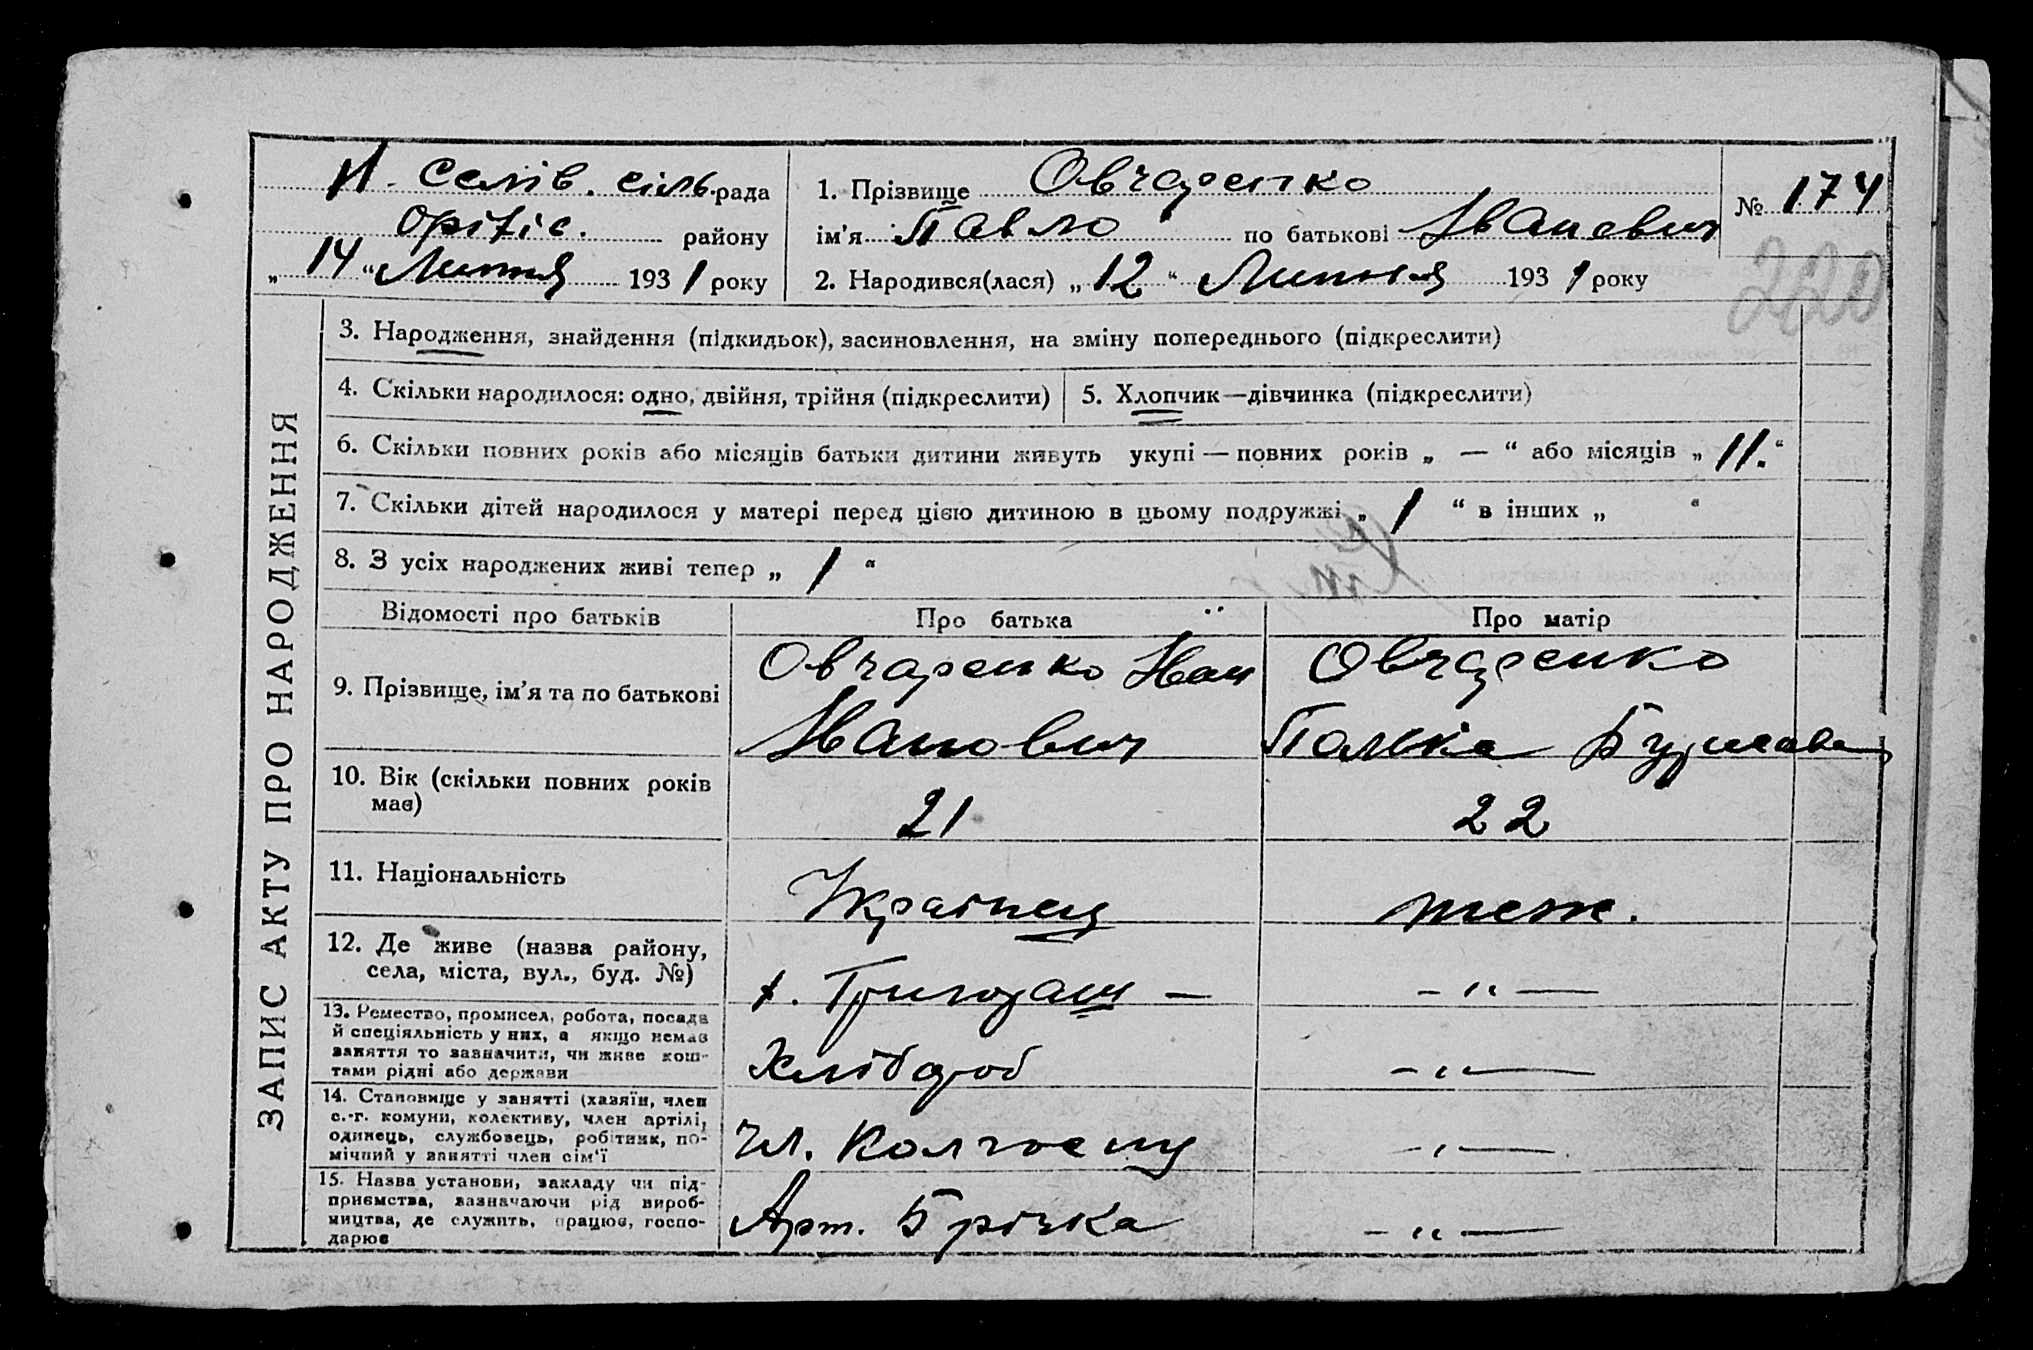 Н. Селів. сільрада
Оріхів. району
„14“ Липня 1931 року
1. Прізвище Овчаренко
ім'я Павло по батькові Іванович
2. Народився(лася) „12“ Липня 1931 року
№ 174
220
ЗАПИС АКТУ ПРО НАРОДЖЕННЯ
3. Народження, знайдення (підкидьок), засиновлення, на зміну попереднього (підкреслити)
4. Скільки народилося: одно, двійня, трійня (підкреслити)
5. Хлопчик—дівчинка (підкреслити)
6. Скільки повних років або місяців батьки дитини живуть укупі — повних років „ — “ або місяців „11.“
7. Скільки дітей народилося у матері перед цією дитиною в цьому подружжі „1“ в інших „ “
8. З усіх народжених живі тепер „1“
Відомості про батьків Про батька Про матір
9. Прізвище, ім'я та по батькові
Овчаренко Іван
Іванович
Овчаренко
10. Вік (скільки повних років
має)
21
22
11. Національність
Українец
теж.
12. Де живе (назва району,
села, міста, вул., буд. №)
х. —
— „ —
13. Ремество, промисел, робота, посада
й спеціяльність у них, а якщо немає
заняття то зазначити, чи живе кош-
тами рідні або держави
Хлібороб
— „ —
14. Становище у занятті (хазяїн, член
с.-г. комуни, колективу, член артілі,
одинець, службовець, робітник, по-
мічний у занятті член сім'ї
Чл. Колгоспу
— „ —
15. Назва установи, закладу чи під-
приємства, зазначаючи рід вироб-
ництва, де служить, працює, госпо-
дарює
Арт.
— „ —